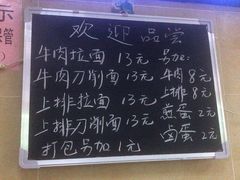 欢迎品尝
牛肉拉面 13元
牛肉刀削面 13元
上排拉面 13元
上排刀削面 13元
打包另加1元
另加:
牛肉8元
上排8元
煎蛋2元
卤蛋2元
示
管